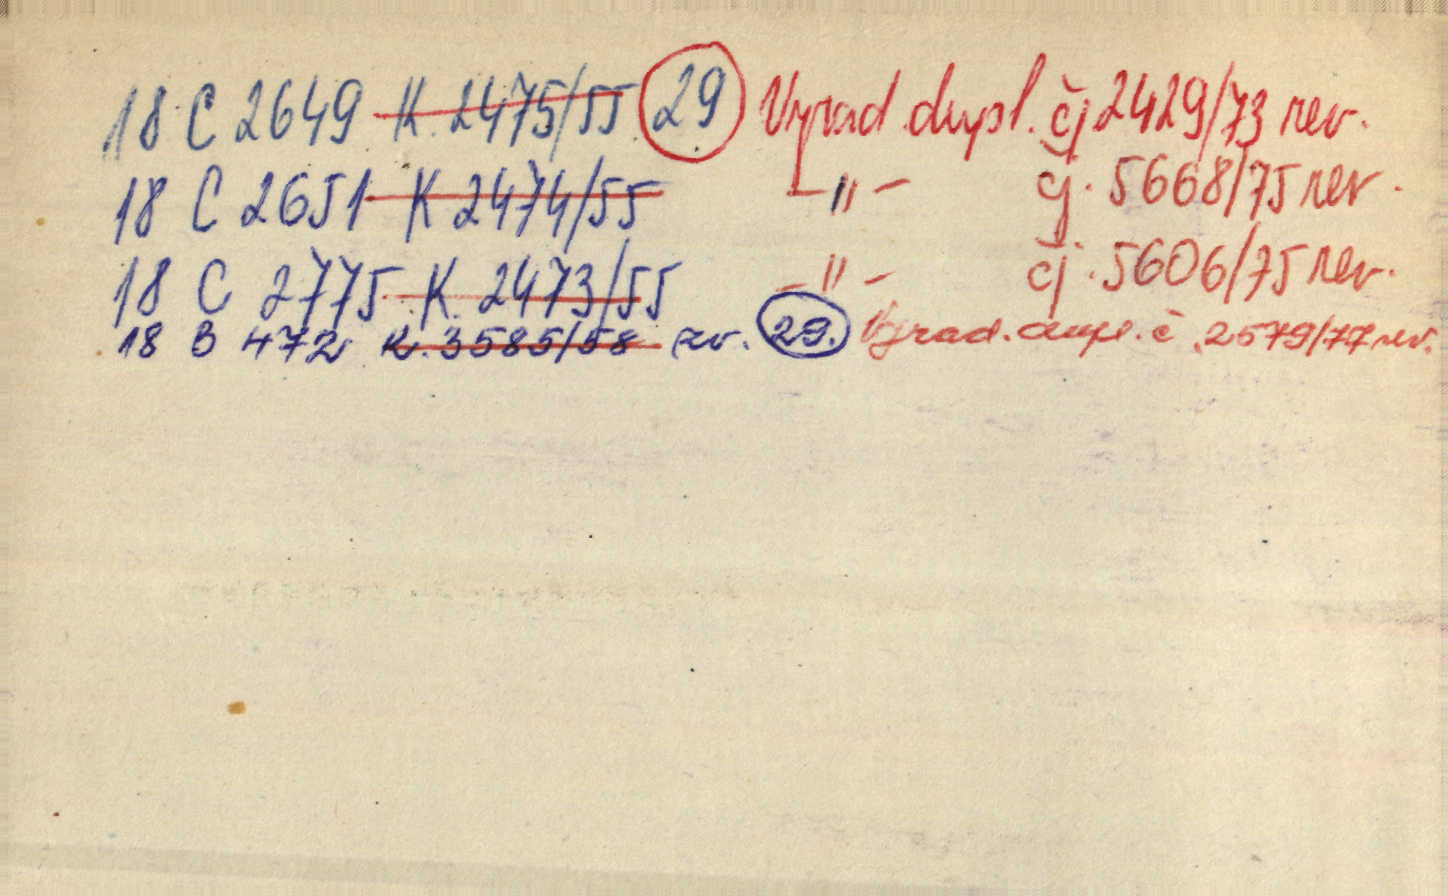 18 C 2649 K. 2475/55 29 Vyřad. dupl. čj 2429/73 rev.
18 C 2651 K 2474/55 - " - čj. 5668/75 rev.
18 C 2775 K. 2473/55 - " - čj. 5606/75 rev.
18 B 472 K. 3585/58 rv. 29. Vyrad. dupl. č. 2579/77 rev.